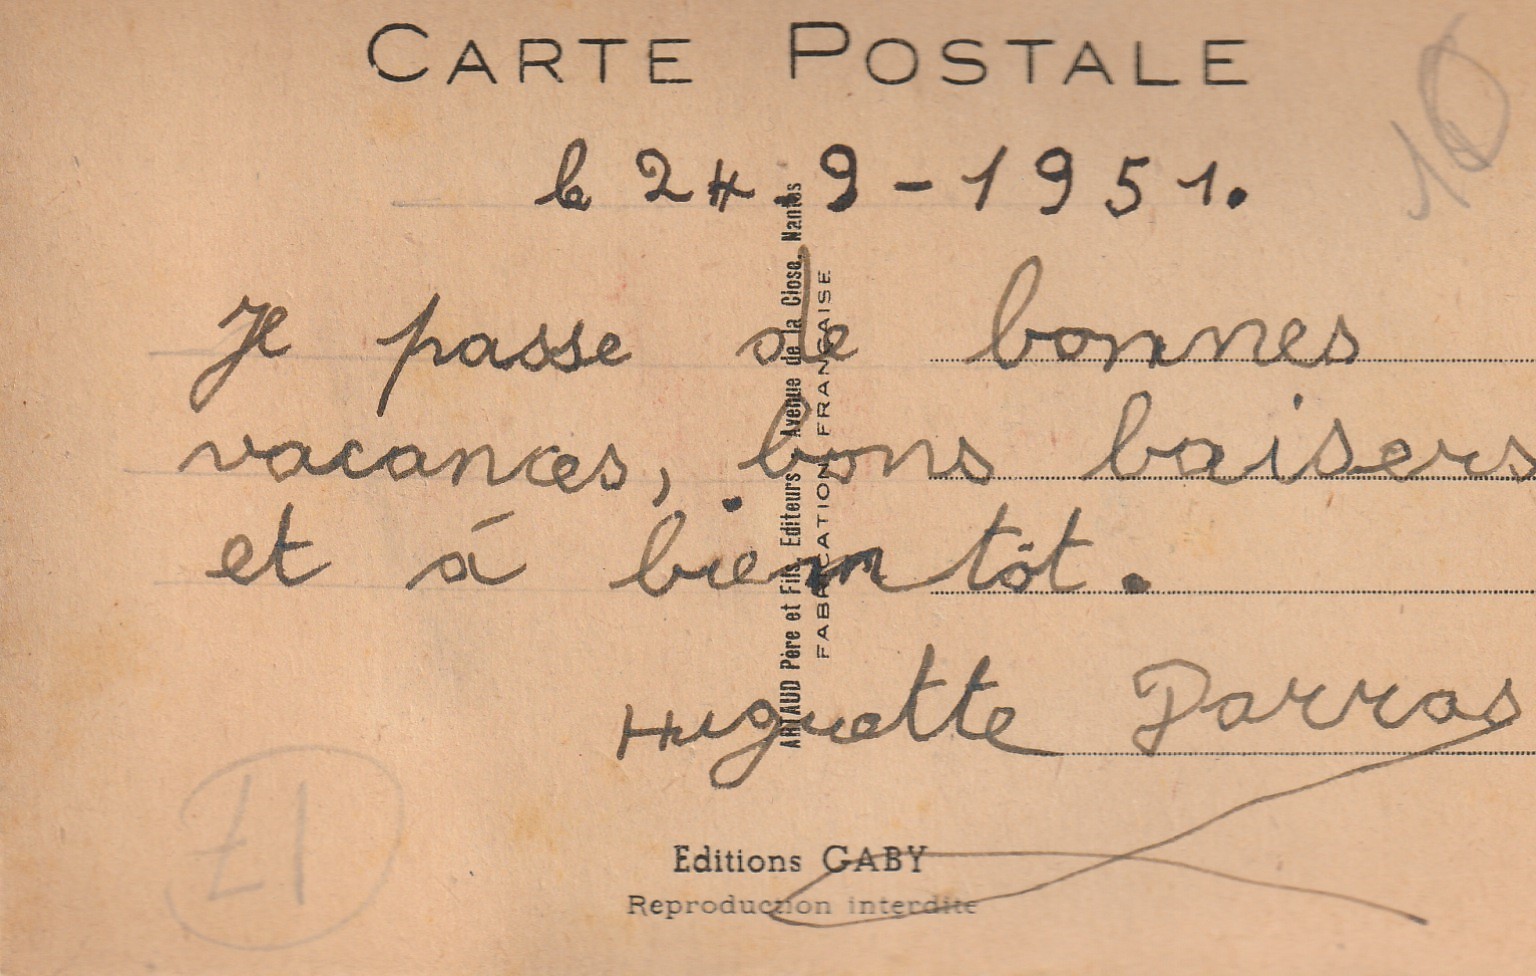 CARTE POSTALE
le 24-9-1951.
Je passe de bonnes
vacances, bons baisers
et à bientôt.
Huguette Parras
ARTAUD Père et Fils, Editeurs, Avenue de la Close, Nantes
FABRICATION FRANÇAISE
Editions GABY
Reproduction interdite
10